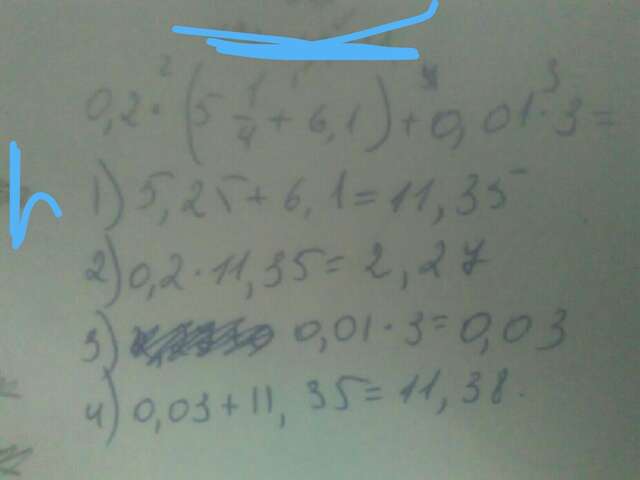 2 1 4 3
0,2 · (5 1/4 + 6,1) + 0,01 · 3 =
1) 5,25 + 6,1 = 11,35
2) 0,2 · 11,35 = 2,27
3) 0,01 · 3 = 0,03
4) 0,03 + 11,35 = 11,38.
h